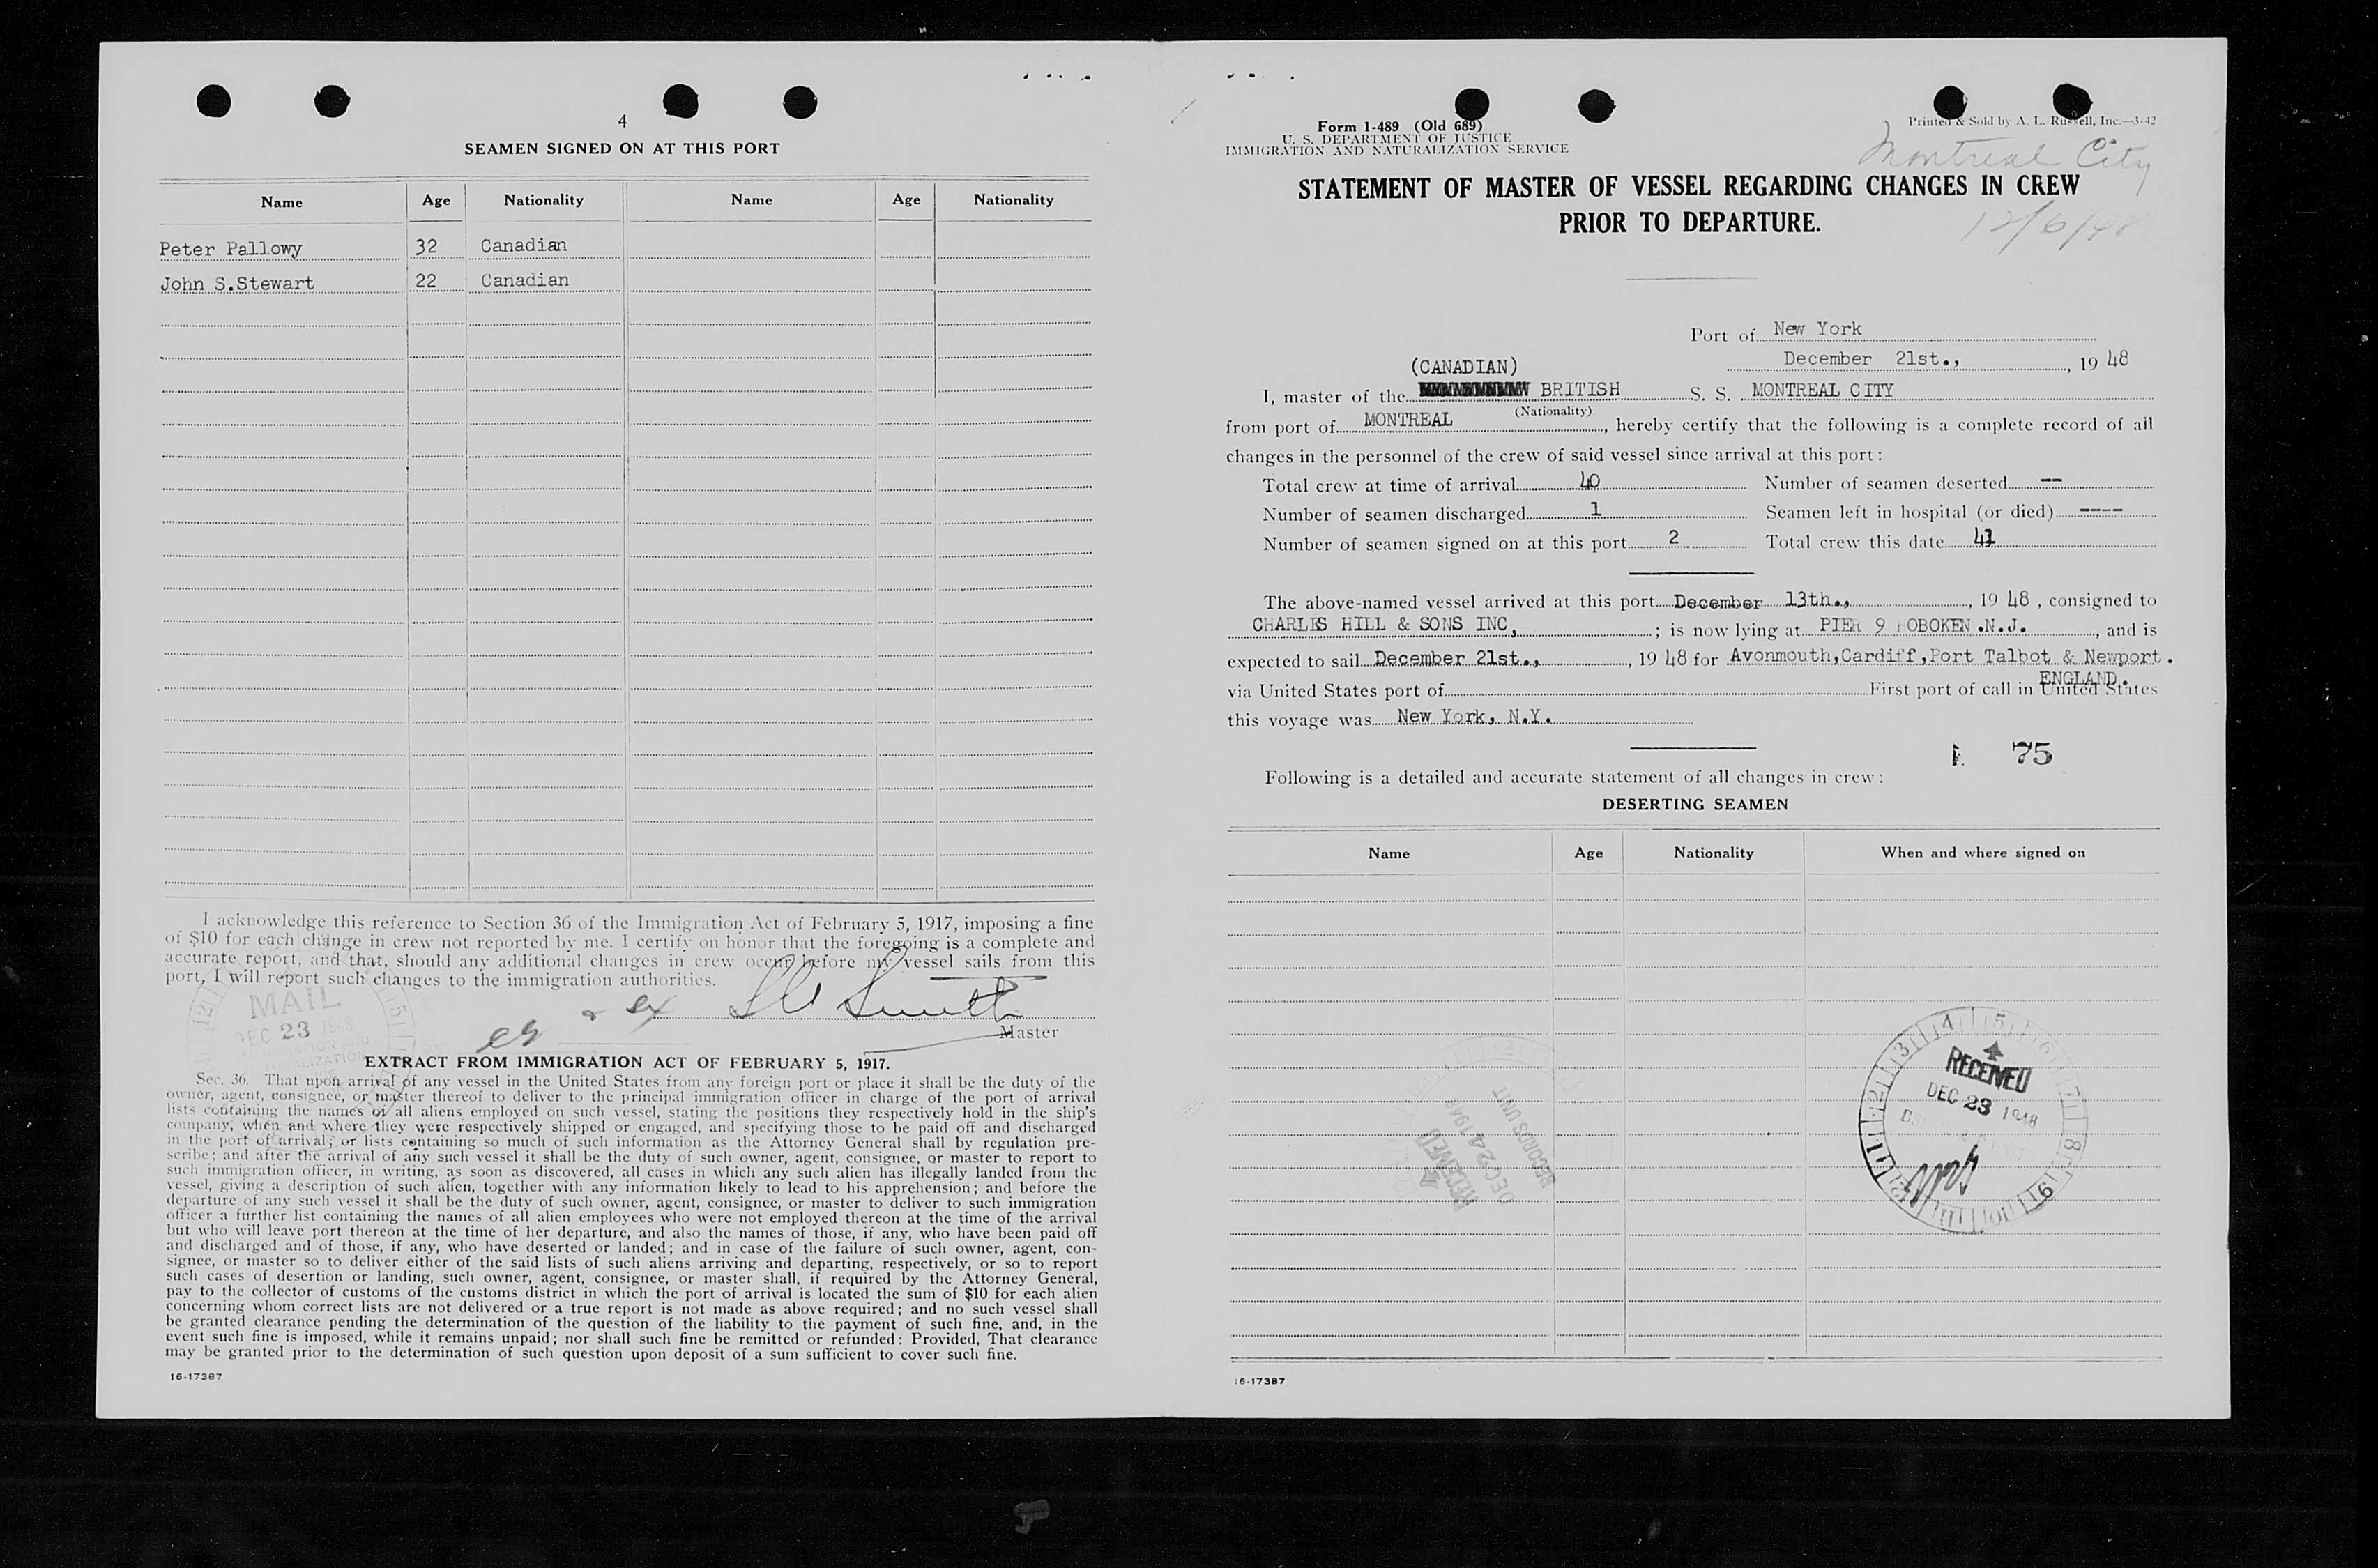 4
SEAMEN SIGNED ON AT THIS PORT
Name Age Nationality Name Age Nationality
Peter Pallowy 32 Canadian
John S.Stewart 22 Canadian
I acknowledge this reference to Section 36 of the Immigration Act of February 5, 1917, imposing a fine
of $10 for each change in crew not reported by me. I certify on honor that the foregoing is a complete and
accurate report, and that, should any additional changes in crew occur before my vessel sails from this
port, I will report such changes to the immigration authorities.
MAIL
DEC 23 1948
Smith
Master
EXTRACT FROM IMMIGRATION ACT OF FEBRUARY 5, 1917.
Sec. 36. That upon arrival of any vessel in the United States from any foreign port or place it shall be the duty of the
owner, agent, consignee, or master thereof to deliver to the principal immigration officer in charge of the port of arrival
lists containing the names of all aliens employed on such vessel, stating the positions they respectively hold in the ship's
company, when and where they were respectively shipped or engaged, and specifying those to be paid off and discharged
in the port of arrival; or lists containing so much of such information as the Attorney General shall by regulation pre-
scribe; and after the arrival of any such vessel it shall be the duty of such owner, agent, consignee, or master to report to
such immigration officer, in writing, as soon as discovered, all cases in which any such alien has illegally landed from the
vessel, giving a description of such alien, together with any information likely to lead to his apprehension; and before the
departure of any such vessel it shall be the duty of such owner, agent, consignee, or master to deliver to such immigration
officer a further list containing the names of all alien employees who were not employed thereon at the time of the arrival
but who will leave port thereon at the time of her departure, and also the names of those, if any, who have been paid off
and discharged and of those, if any, who have deserted or landed; and in case of the failure of such owner, agent, con-
signee, or master so to deliver either of the said lists of such aliens arriving and departing, respectively, or so to report
such cases of desertion or landing, such owner, agent, consignee, or master shall, if required by the Attorney General,
pay to the collector of customs of the customs district in which the port of arrival is located the sum of $10 for each alien
concerning whom correct lists are not delivered or a true report is not made as above required; and no such vessel shall
be granted clearance pending the determination of the question of the liability to the payment of such fine, and, in the
event such fine is imposed, while it remains unpaid; nor shall such fine be remitted or refunded: Provided, That clearance
may be granted prior to the determination of such question upon deposit of a sum sufficient to cover such fine.
16-17387
Form 1-489 (Old 689)
U. S. DEPARTMENT OF JUSTICE
IMMIGRATION AND NATURALIZATION SERVICE
Printed & Sold by A. L. Russell, Inc.—3-42
Montreal City
12/6/48
STATEMENT OF MASTER OF VESSEL REGARDING CHANGES IN CREW
PRIOR TO DEPARTURE.
Port of New York
December 21st., , 19 48
(CANADIAN)
I, master of the BRITISH S. S. MONTREAL CITY
(Nationality)
from port of MONTREAL , hereby certify that the following is a complete record of all
changes in the personnel of the crew of said vessel since arrival at this port:
Total crew at time of arrival 40 Number of seamen deserted --
Number of seamen discharged 1 Seamen left in hospital (or died) ----
Number of seamen signed on at this port 2 Total crew this date 41
The above-named vessel arrived at this port December 13th., , 19 48 , consigned to
CHARLES HILL & SONS INC, ; is now lying at PIER 9 HOBOKEN .N.J. , and is
expected to sail December 21st., , 19 48 for Avonmouth,Cardiff,Port Talbot & Newport.
ENGLAND.
via United States port of First port of call in United States
this voyage was New York, N.Y.
75
Following is a detailed and accurate statement of all changes in crew:
DESERTING SEAMEN
Name Age Nationality When and where signed on
RECEIVED
DEC 24 1948
RECORDS UNIT
RECEIVED
DEC 23 1948
16-17387